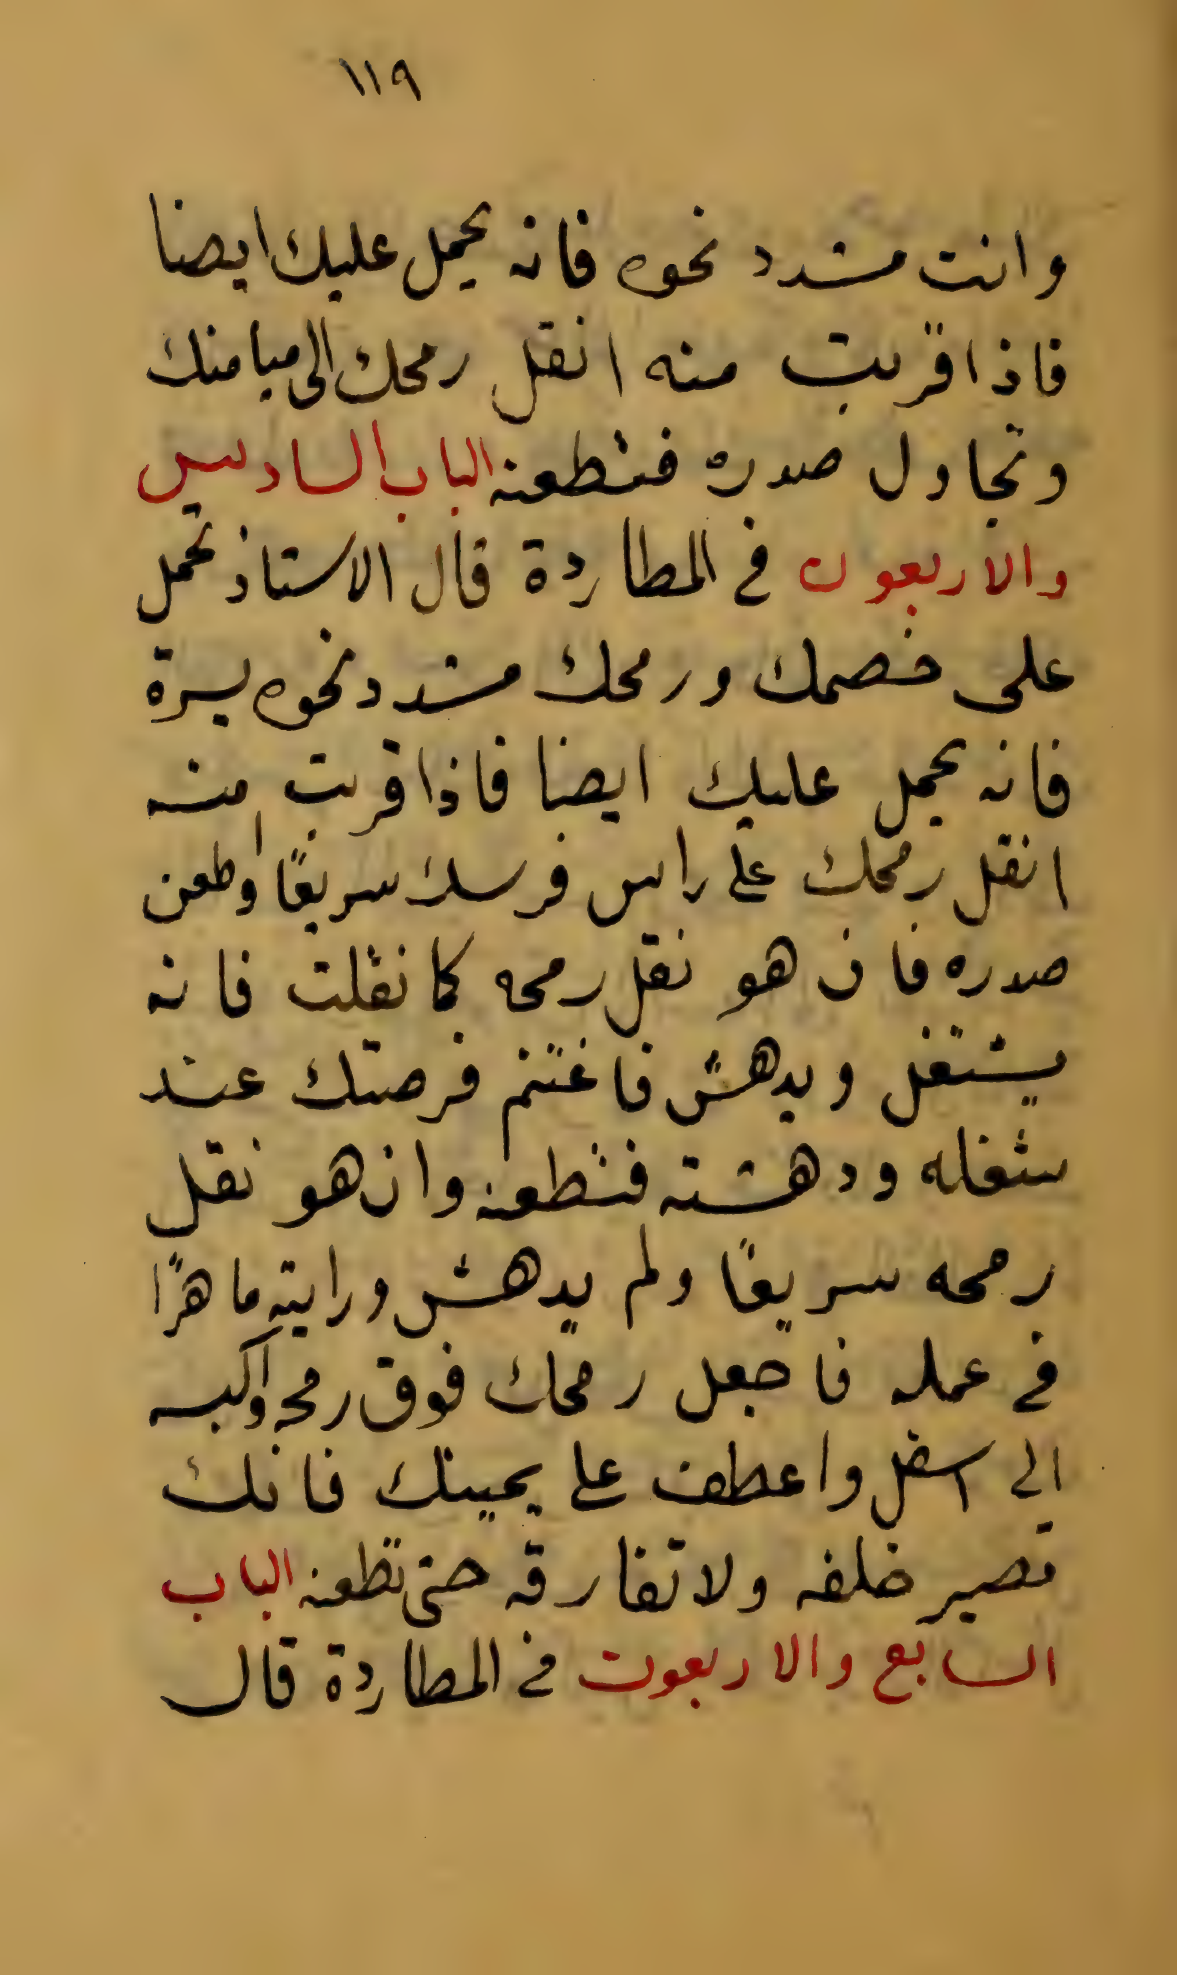 ١١٩
وانت مشدد نحوه فانه يحمل عليك ايضا
فاذا قربت منه انقل رمحك الى ميامنك
وتجاول صدره فتطعنه الباب السادس
والاربعون في المطاردة قال الاستاذ تحمل
على خصمك ورمحك مشدد نحوه يسرة
فانه يحمل عليك ايضا فاذا قربت منه
انقل رمحك على راس فرسك سريعًا واطعن
صدره فان هو نقل رمحه كما نقلت فانه
يشتغل ويدهش فاغتنم فرصتك عند
شغله ودهشته فتطعنه وان هو نقل
رمحه سريعًا ولم يدهش ورايته ماهرًا
في عمله فاجعل رمحك فوق رمحه واكبسه
الى اسفل واعطف على يمينك فانك
تصير خلفه ولا تفارقه حتى تطعنه الباب
السابع والاربعون في المطاردة قال